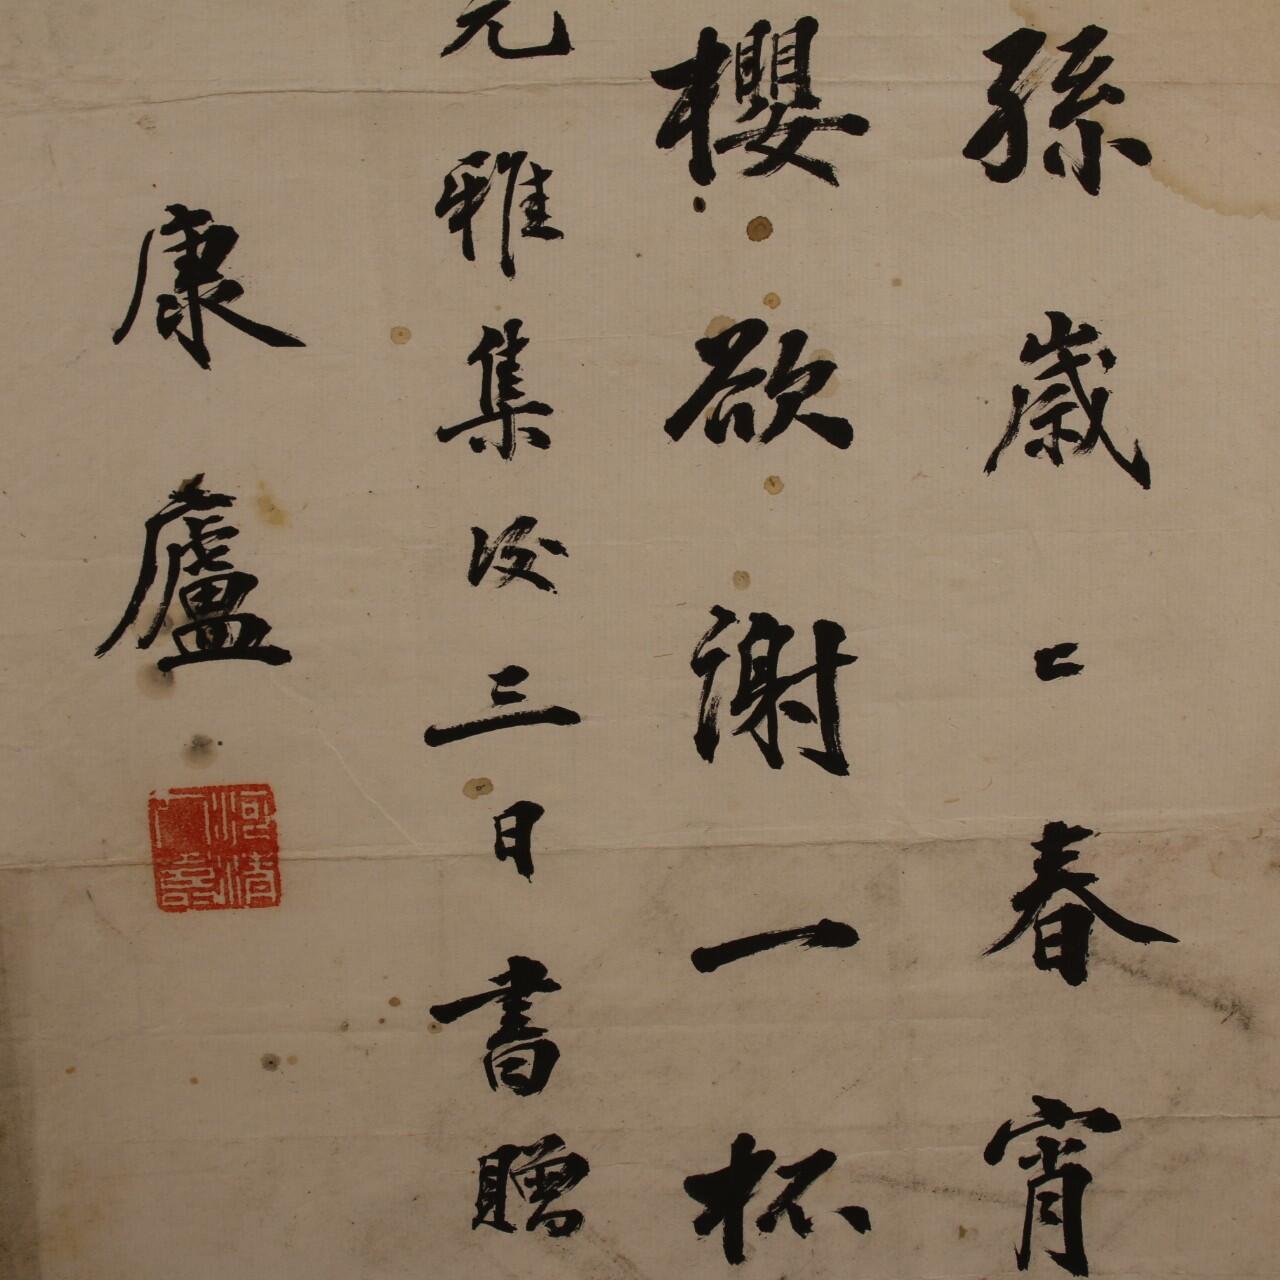 孫歲〻春宵
櫻欲謝一杯
元雅集後三日書贈
康廬